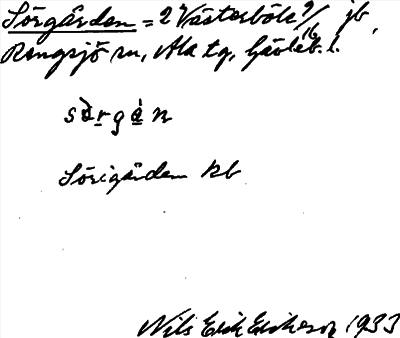 Sörgården = 2 Västerböle 9/16 jb,
Rengsjö sn, Ala tg, Gävleb. l.
sörgån
Sörigården kb
Nils Erik Eriksson 1933